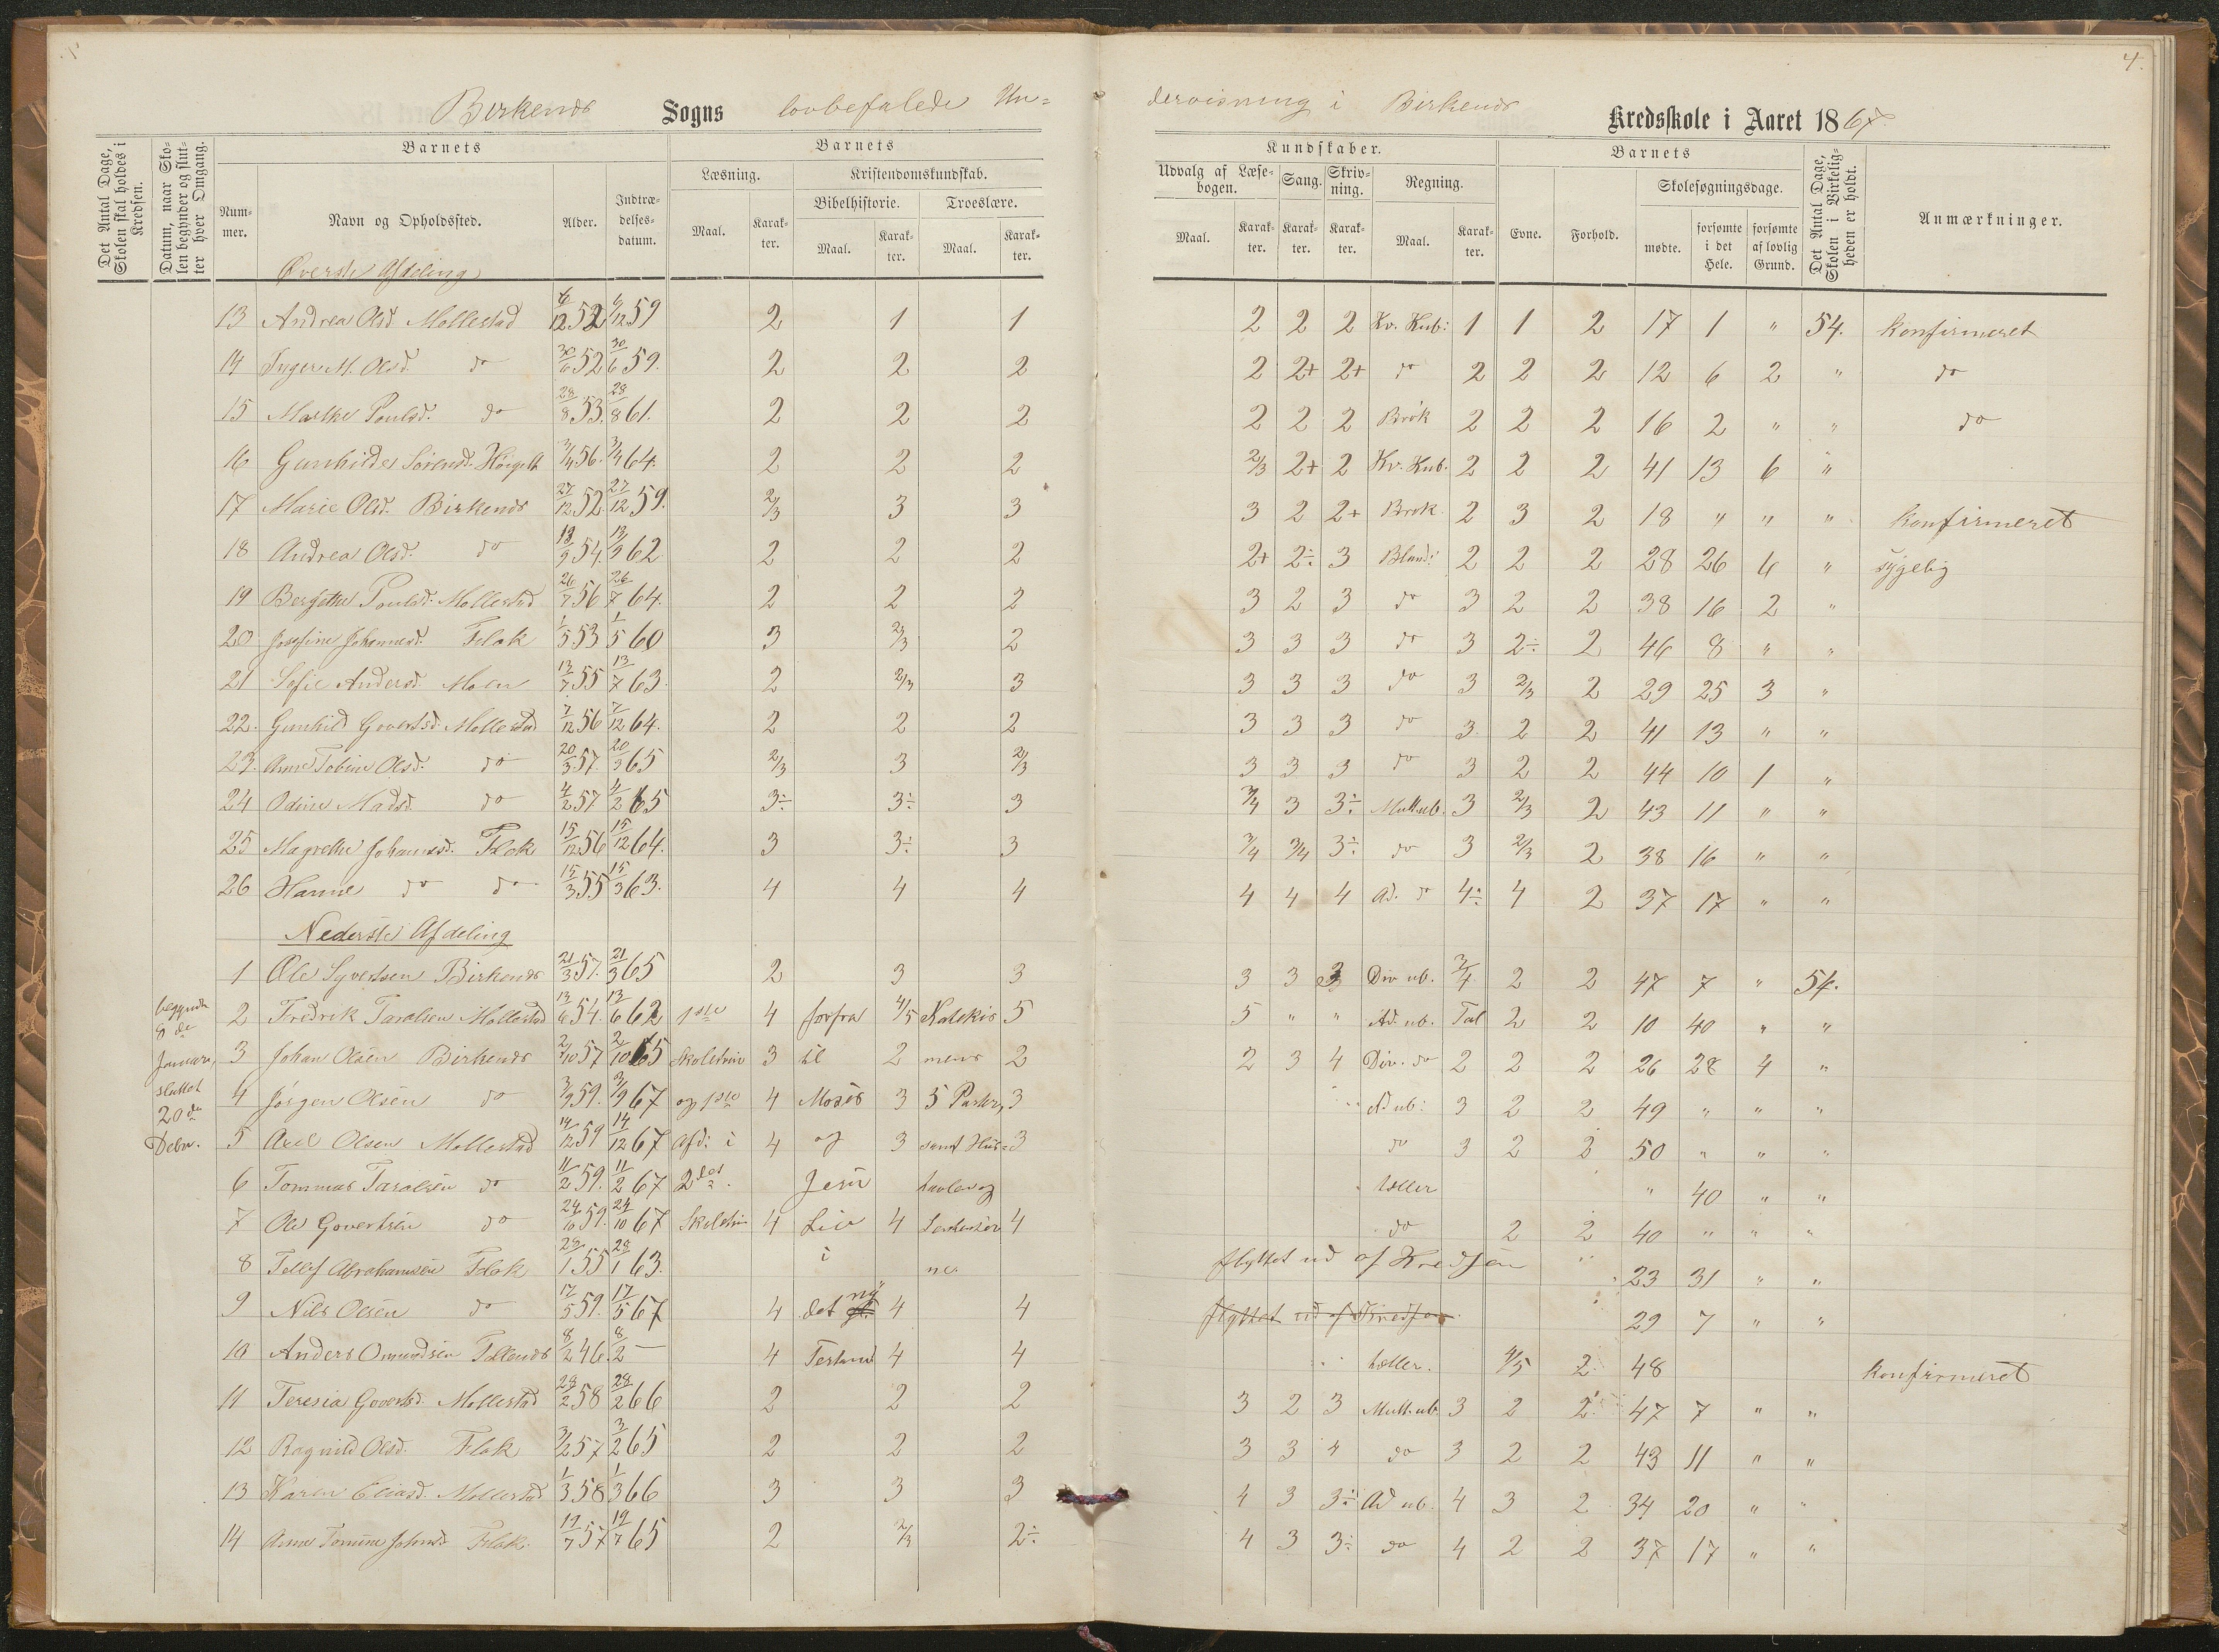 4.
Birkenes Sogns lovbefalede Un=
dervisning i Birkenes Kredsskole i Aaret 1867
Det Antal Dage, Skolen skal holdes i Kredsen.
Datum, naar Skolen begynder og slutter hver Omgang.
Barnets
Nummer.
Navn og Opholdssted.
Alder.
Indtrædelsesdatum.
Barnets
Læsning.
Maal.
Karakter.
Kristendomskundskab.
Bibelhistorie.
Maal.
Karakter.
Troeslære.
Maal.
Karakter.
Kundskaber.
Udvalg af Læsebogen.
Maal.
Karakter.
Sang.
Karakter.
Skrivning.
Karakter.
Regning.
Maal.
Karakter.
Barnets
Evne.
Forhold.
Skolesøgningsdage.
mødte.
forsømte i det Hele.
forsømte af lovlig Grund.
Det Antal Dage, Skolen i Virkeligheden er holdt.
Anmærkninger.
Øverste Afdeling
13 Andrea Olsd. Mollestad 6/12 52 6/12 59 2 1 1 2 2 2 Kv. Kub: 1 1 2 17 1 " 54. Konfirmeret
14 Inger M. Olsd. do 30/6 52 30/6 59. 2 2 2 2 2+ 2+ do 2 2 2 12 6 2 " do
15 Marthe Poulsd. do 28/8 53. 28/8 61. 2 2 2 2 2 2 Brøk 2 2 2 16 2 " " do
16 Gunhilde Sørensd. 3/4 56. 3/4 64. 2 2 2 2/3 2+ 2 Kv. Kub. 2 2 2 41 13 6 "
17 Marie Olsd. Birkenes 27/12 52. 27/12 59. 2/3 3 3 3 2 2+ Brøk. 2 3 2 18 " " " Konfirmeret
18 Andrea Olsd. do 13/9 54. 13/9 62 2 2 2 2+ 2÷ 3 Bland: 2 2 2 28 26 4 " sygelig
19 Bergithe Poulsd. Mollestad 26/7 56 26/7 64. 2 2 2 3 2 3 do 3 2 2 38 16 2 "
20 Josefine Johannesd. Flak 1/5 53 1/5 60 3 2/3 2 3 3 3 do 3 2÷ 2 46 8 " "
21 Sofie Andersd. Moen 13/7 55 13/7 63. 2 2/3 3 3 3 3 do 3 2/3 2 29 25 3 "
22. Gunhild Govertsd. Mollestad 7/12 56 7/12 64. 2 2 2 3 3 3 do 3. 2 2 41 13 " "
23. Anne Tobine Olsd. do 20/3 57. 20/3 65 2/3 3 2/3 3 3 3 do 3 2 2 44 10 1 "
24 Odine Madsd. do 4/2 57 4/2 65 3÷ 3÷ 3 3/4 3 3÷ Mult. ub. 3 2/3 2 43 11 " "
25 Magrethe Johannesd. Flak 15/12 56 15/12 64. 3 3÷ 3 3/4 3/4 3÷ do 3 2/3 2 38 16 " "
26 Hanne do do 15/3 55 15/3 63. 4 4 4 4 4 4 Ad. do 4÷ 4 2 37 17 " "
Nederste Afdeling
1 Ole Syvertsen Birkenes 21/3 57. 21/3 65 2 3 3 3 3 3 Div ub. 3/4 2 2 47 7 " 54.
begyndte 8de Januar, sluttet 20de Debr.
2 Fredrik Taralsen Mollestad 13/6 54. 13/6 62 1ste 4 forfra 4/5 Katekis 5 5 " " Ad. ub. Tal 2 2 10 40 " "
3 Johan Olsen Birkenes 2/10 57 2/10 65 Skoletrin 3 til 2 mens 2 2 3 4 Div. do 2 2 2 26 28 4 "
4 Jørgen Olsen do 3/9 59. 3/9 67 og 1ste 4 Moses 3 5 Parter, 3 Ad ub: 3 2 2 49 " " "
5 Axel Olsen Mollestad 14/12 59 14/12 67 Afd: i 4 og 3 samt Hus= 3 do 3 2 2 50 " " "
6 Tommas Taralsen do 11/2 59. 11/2 67 2det Jesu tavlen og tæller " 40 " "
7 Ole Govertsen do 24/10 59. 24/10 67 Skoletrin 4 Liv 4 4 do 2 2 40 " " "
8 Tellef Abrahamsen Flak 28/1 55 28/1 63. i ne flyttet ud af Kredsen 23 31 " "
9 Nils Olsen do 17/5 59. 17/5 67 4 det ny 4 4 flyttet ud af Kredsen. 29 7 " "
10 Anders Omundsen 8/2 46. 8/2 — 4 Testam 4 4 tæller. 4/5 2 48 Konfirmeret
11 Teresia Govertsd. Mollestad 28/2 58 28/2 66 2 2 2 3 2 3 Mult. ub. 3 2 2 47 7 " "
12 Ragnild Olsd. Flak 3/2 57 3/2 65 2 2 2 3 3 4 do 3 2 2 43 11 " "
13 Karen Eliasd. Mollestad 1/3 58 1/3 66 3 3 3 4 3 3÷ Ad ub. 4 3 2 34 20 " "
14 Anne Tomine Johnsd. Flak 19/7 57 19/7 65 2 2/3 2÷ 4 3 3÷ do 4 2 2 37 17 " "